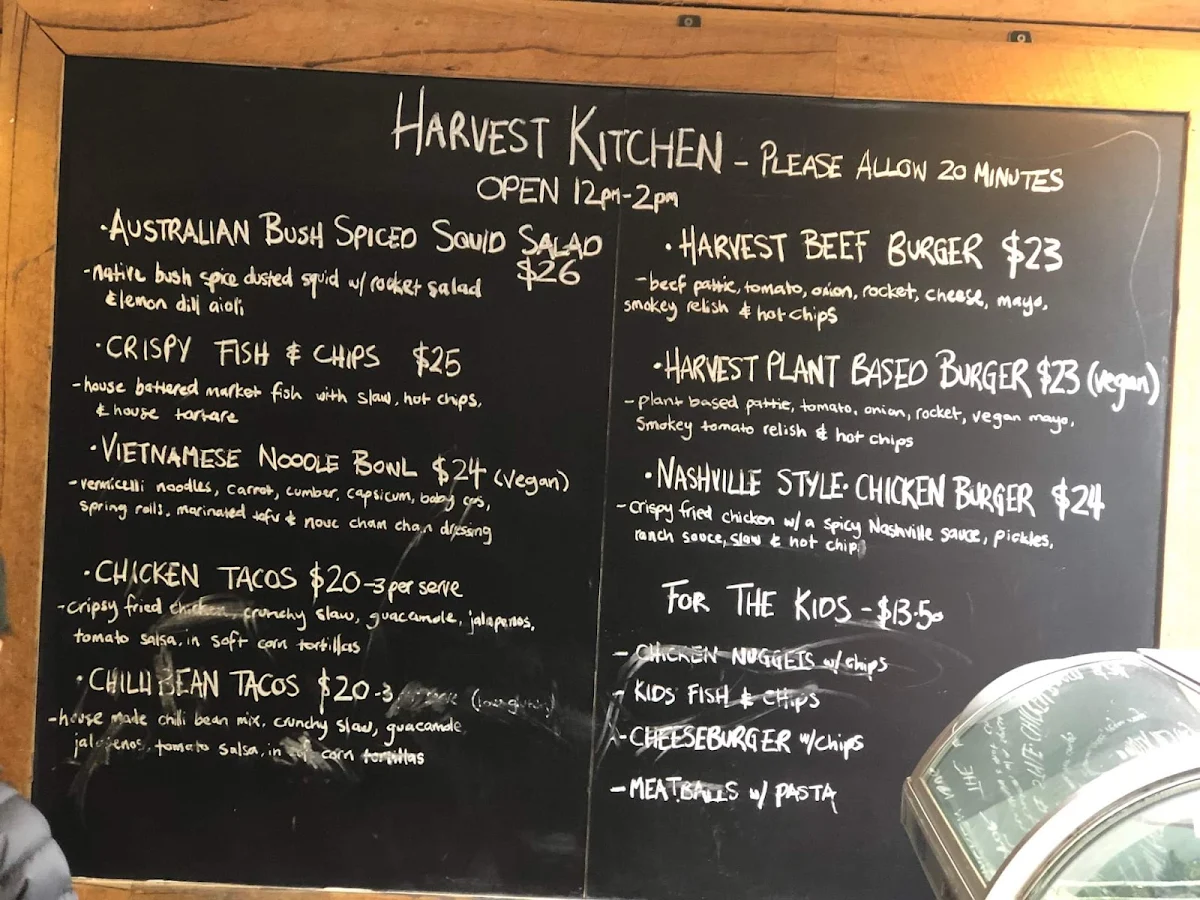 HARVEST KITCHEN - PLEASE ALLOW 20 MINUTES
OPEN 12pm-2pm
• AUSTRALIAN BUSH SPICED SQUID SALAD
$26
- native bush spice dusted squid w/ rocket salad
& lemon dill aioli
• CRISPY FISH & CHIPS $25
- house battered market fish with slaw, hot chips,
& house tartare
• VIETNAMESE NOODLE BOWL $24 (vegan)
- vermicelli noodles, carrot, cumber, capsicum, baby cos,
spring rolls, marinated tofu & nouc cham chan dressing
• CHICKEN TACOS $20 - 3 per serve
- cripsy fried chicken, crunchy slaw, guacamole, jalapenos,
tomato salsa, in soft corn tortillas
• CHILLI BEAN TACOS $20 - 3
- house made chilli bean mix, crunchy slaw, guacamole,
jalapenos, tomato salsa, in corn tortillas
• HARVEST BEEF BURGER $23
- beef pattie, tomato, onion, rocket, cheese, mayo,
smokey relish & hot chips
• HARVEST PLANT BASED BURGER $23 (vegan)
- plant based pattie, tomato, onion, rocket, vegan mayo,
Smokey tomato relish & hot chips
• NASHVILLE STYLE • CHICKEN BURGER $24
- crispy fried chicken w/ a spicy Nashville sauce, pickles,
ranch sauce, slaw & hot chip
FOR THE KIDS - $13.50
- CHICKEN NUGGETS w/ chips
- KIDS FISH & CHIPS
- CHEESEBURGER w/ chips
- MEATBALLS w/ PASTA